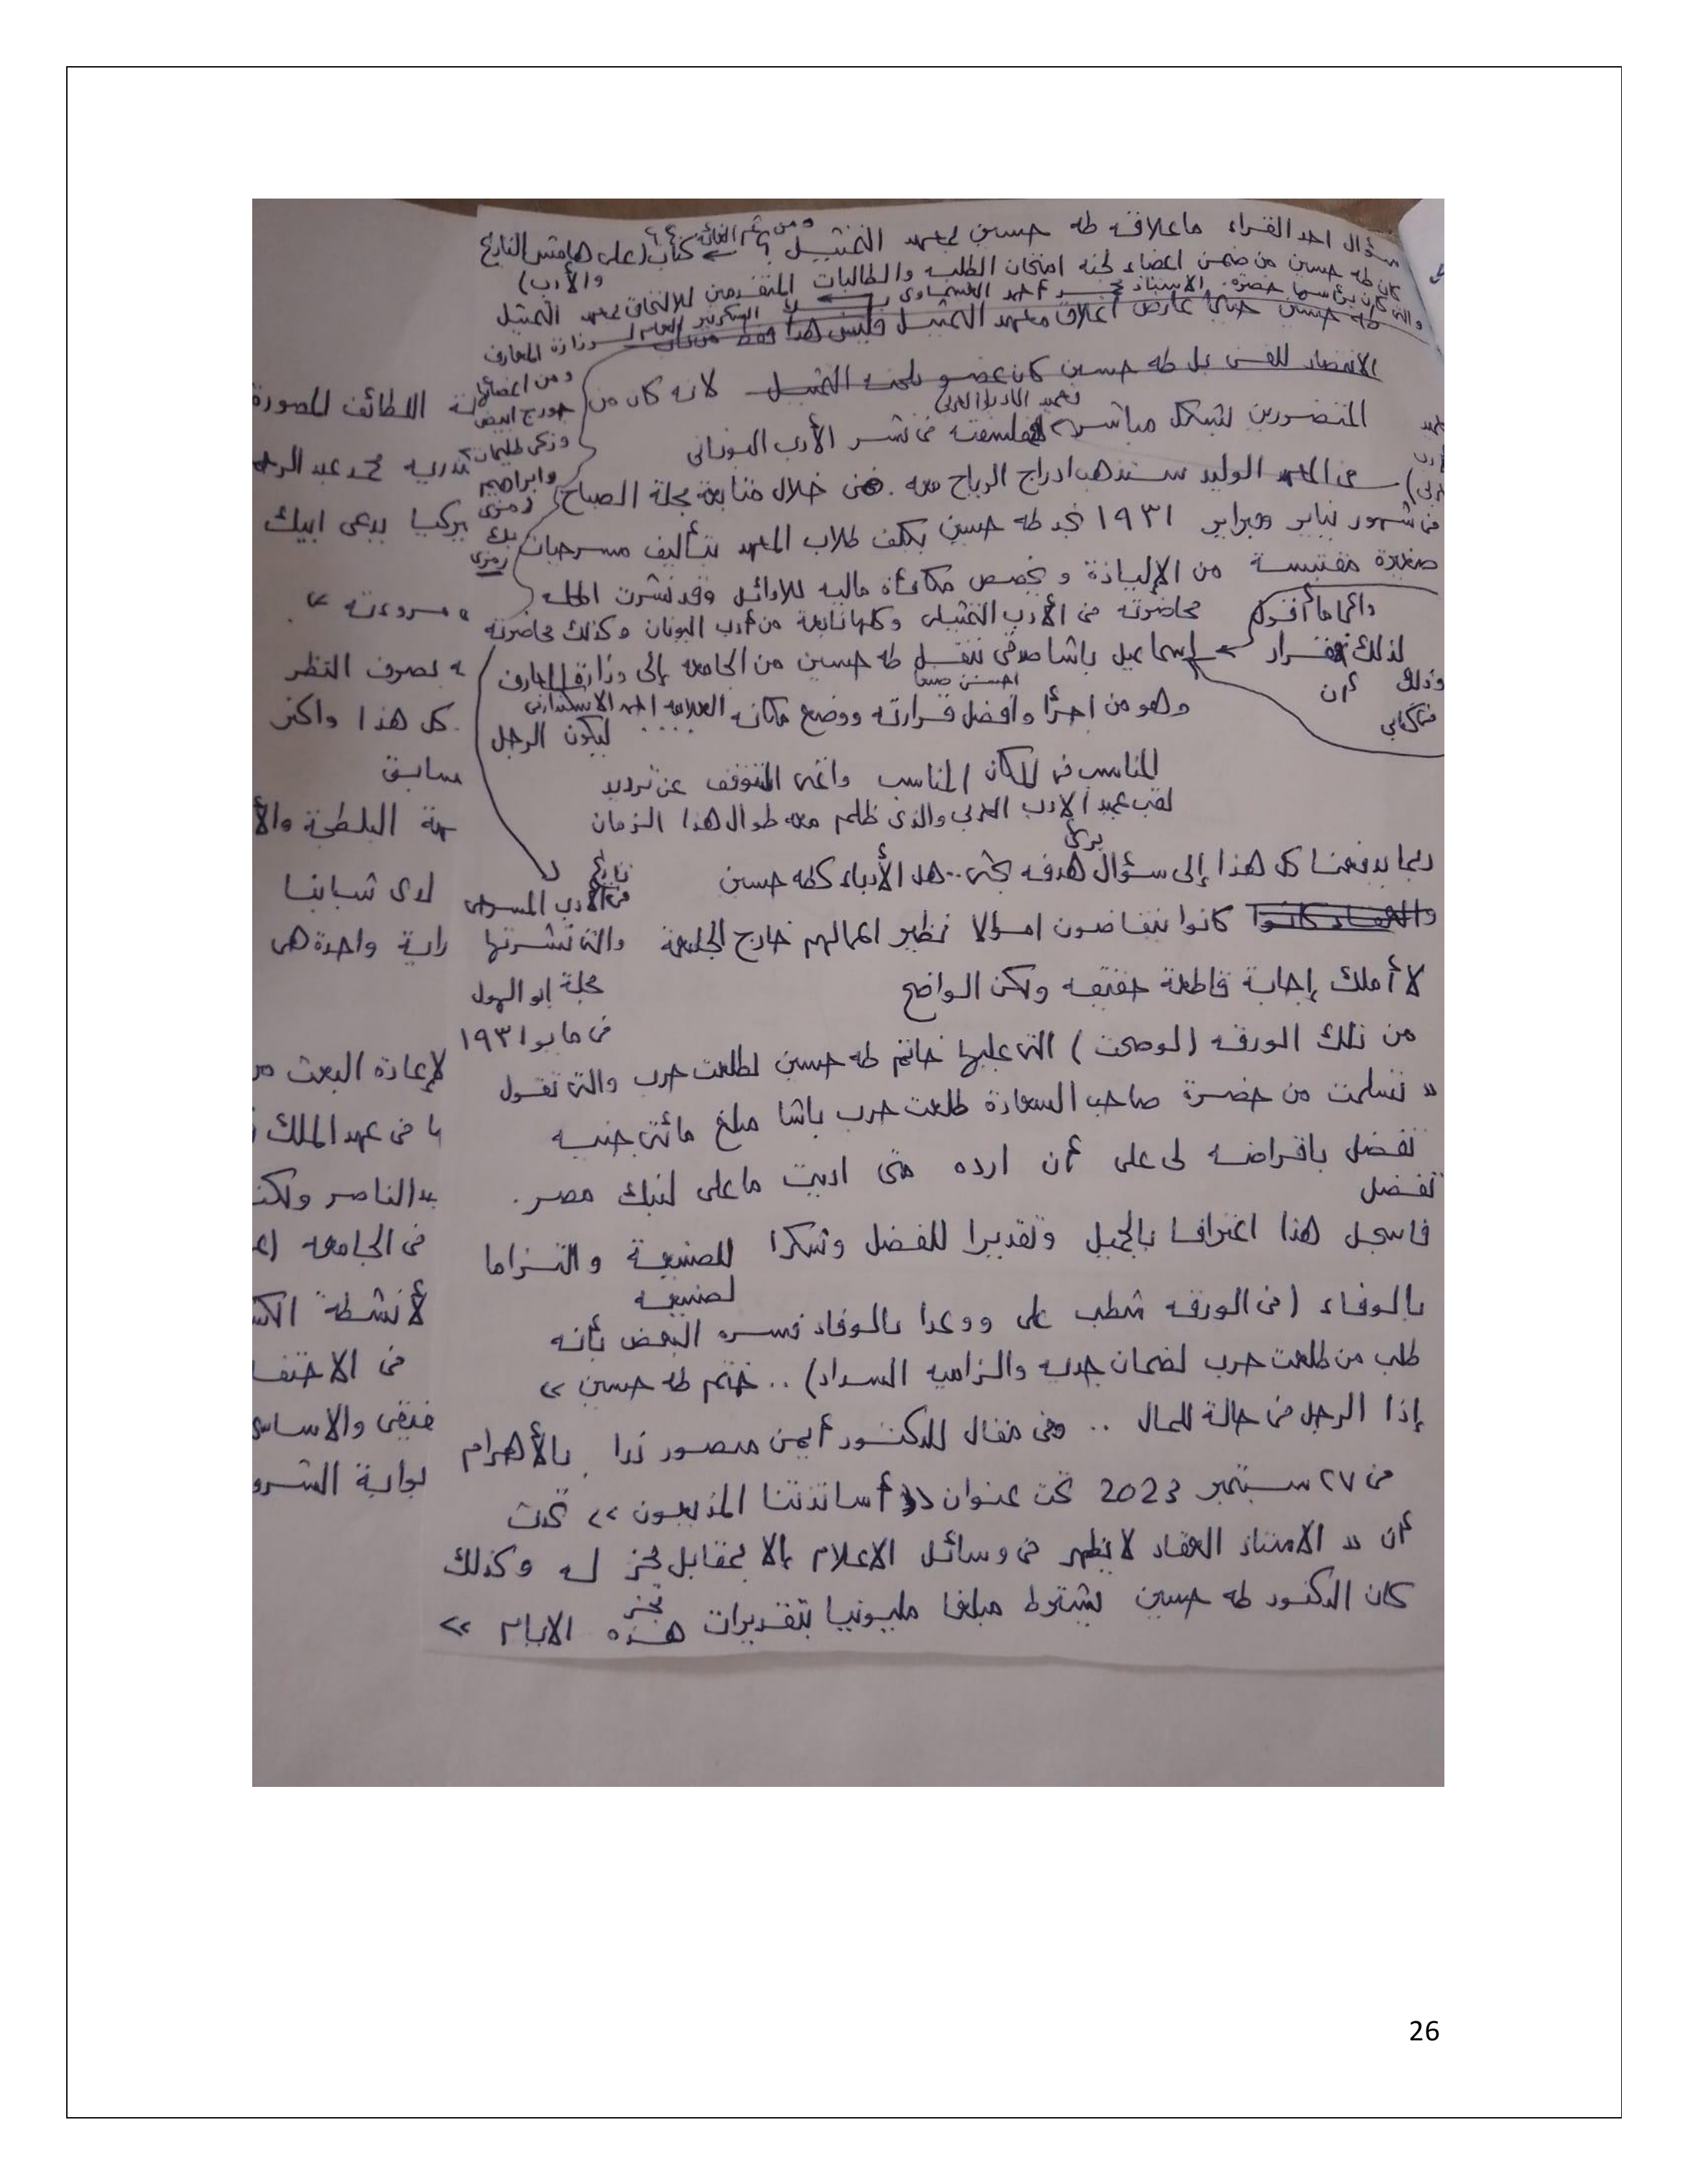 سؤال احد القراء ماعلاقه طه حسين بمعهد التمثيل ؟ كتاب (على هامش التاريخ
والأدب)
كان طه حسين من ضمن اعضاء لجنه امتحان الطلبه والطالبات المتقدمين للالتحاق بمعهد التمثيل
والتى كان يرأسها حضرة الاستاذ احمد العشماوى بك السكرتير العام لوزارة المعارف
طه حسين عارض اغلاق معهد التمثيل فليس هذا فقط من باب
الانتصار للفن بل طه حسين كان عضو بلجنه التمثيل لانه كان من
ومن اعضائها
جورج ابيض
وزكى طليمات
وابراهيم
رمزى
بك
رمزى
المتضررين بشكل مباشر فلسفته فى نشر الأدب اليونانى
عميد الادب العربى
فى المعهد الوليد ستذهب ادراج الرياح معه . فمن خلال متابعة مجلة الصباح
فى شهور يناير وفبراير ١٩٣١ نجد طه حسين يكلف طلاب المعهد بتأليف مسرحيات
صغيرة مقتبسة من الإلياذة ويخصص مكافأة ماليه للاوائل وقد نشرت المجله
محاضرته فى الأدب التمثيلى وكلها نابعة من أدب اليونان وكذلك محاضرته
دائما ما أقول
لذلك فقرار إسماعيل باشا صدقى بنقل طه حسين من الجامعه إلى وزارة المعارف
وذلك أن
وهو من اجرأ وأفضل قرارته ووضع مكانه العلامه احمد الاسكندرانى .... ليكون الرجل
المناسب فى المكان المناسب واتمنى التوقف عن ترديد
لقب عميد الادب العربى والذى ظلم معه طوال هذا الزمان
ربما يدفعنا كل هذا إلى سؤال برئ هدفه بحثى.. هل الأدباء كطه حسين
والعقاد كانوا كانوا يتقاضون اموالا نظير اعمالهم خارج الجامعة
تاريخ
فى الأدب المسرحى
والتى نشرتها
مجلة ابو الهول
فى مايو ١٩٣١
لا أملك إجابة قاطعة حقيقه ولكن الواضح
من تلك الورقه (لوصحت) التى عليها خاتم طه حسين لطلعت حرب والتى تقول
« تسلمت من حضرة صاحب السعادة طلعت حرب باشا مبلغ مائتى جنيه
تفضل باقراضه لى على أن ارده متى اديت ماعلى لبنك مصر .
تفضل
فاسجل هذا اعترافا بالجميل وتقديرا للفضل وشكرا للصنيعة والتزاما
لصنيعه
بالوفاء (فى الورقه شطب على ووعدا بالوفاء فسره البعض بأنه
طلب من طلعت حرب لضمان جديه والزاميه السداد) .. ختم طه حسين »
إذا الرجل فى حالة للمال .. وفى مقال للدكتور أيمن منصور ندا بالأهرام
فى ٢٧ سبتمبر 2023 تحت عنوان « أساتذتنا المذيعون » تحدث
أن « الاستاذ العقاد لا يظهر فى وسائل الاعلام إلا بمقابل مجز له وكذلك
كان الدكتور طه حسين يشترط مبلغا مجز مليونيا بتقديرات هذه الايام »
اللطائف المصورة
محمد عبد الرحيم
تركيا يدعى ابيك
مروءته »
بصرف النظر
كل هذا واكثر
سابق
البلطجة والأ
لدى شبابنا
راية واحدة هى
لإعادة البعث من
فى عهد الملك
الناصر ولكن
فى الجامعه
لأنشطة
فى
والاساسى
بوابة الشرو
26